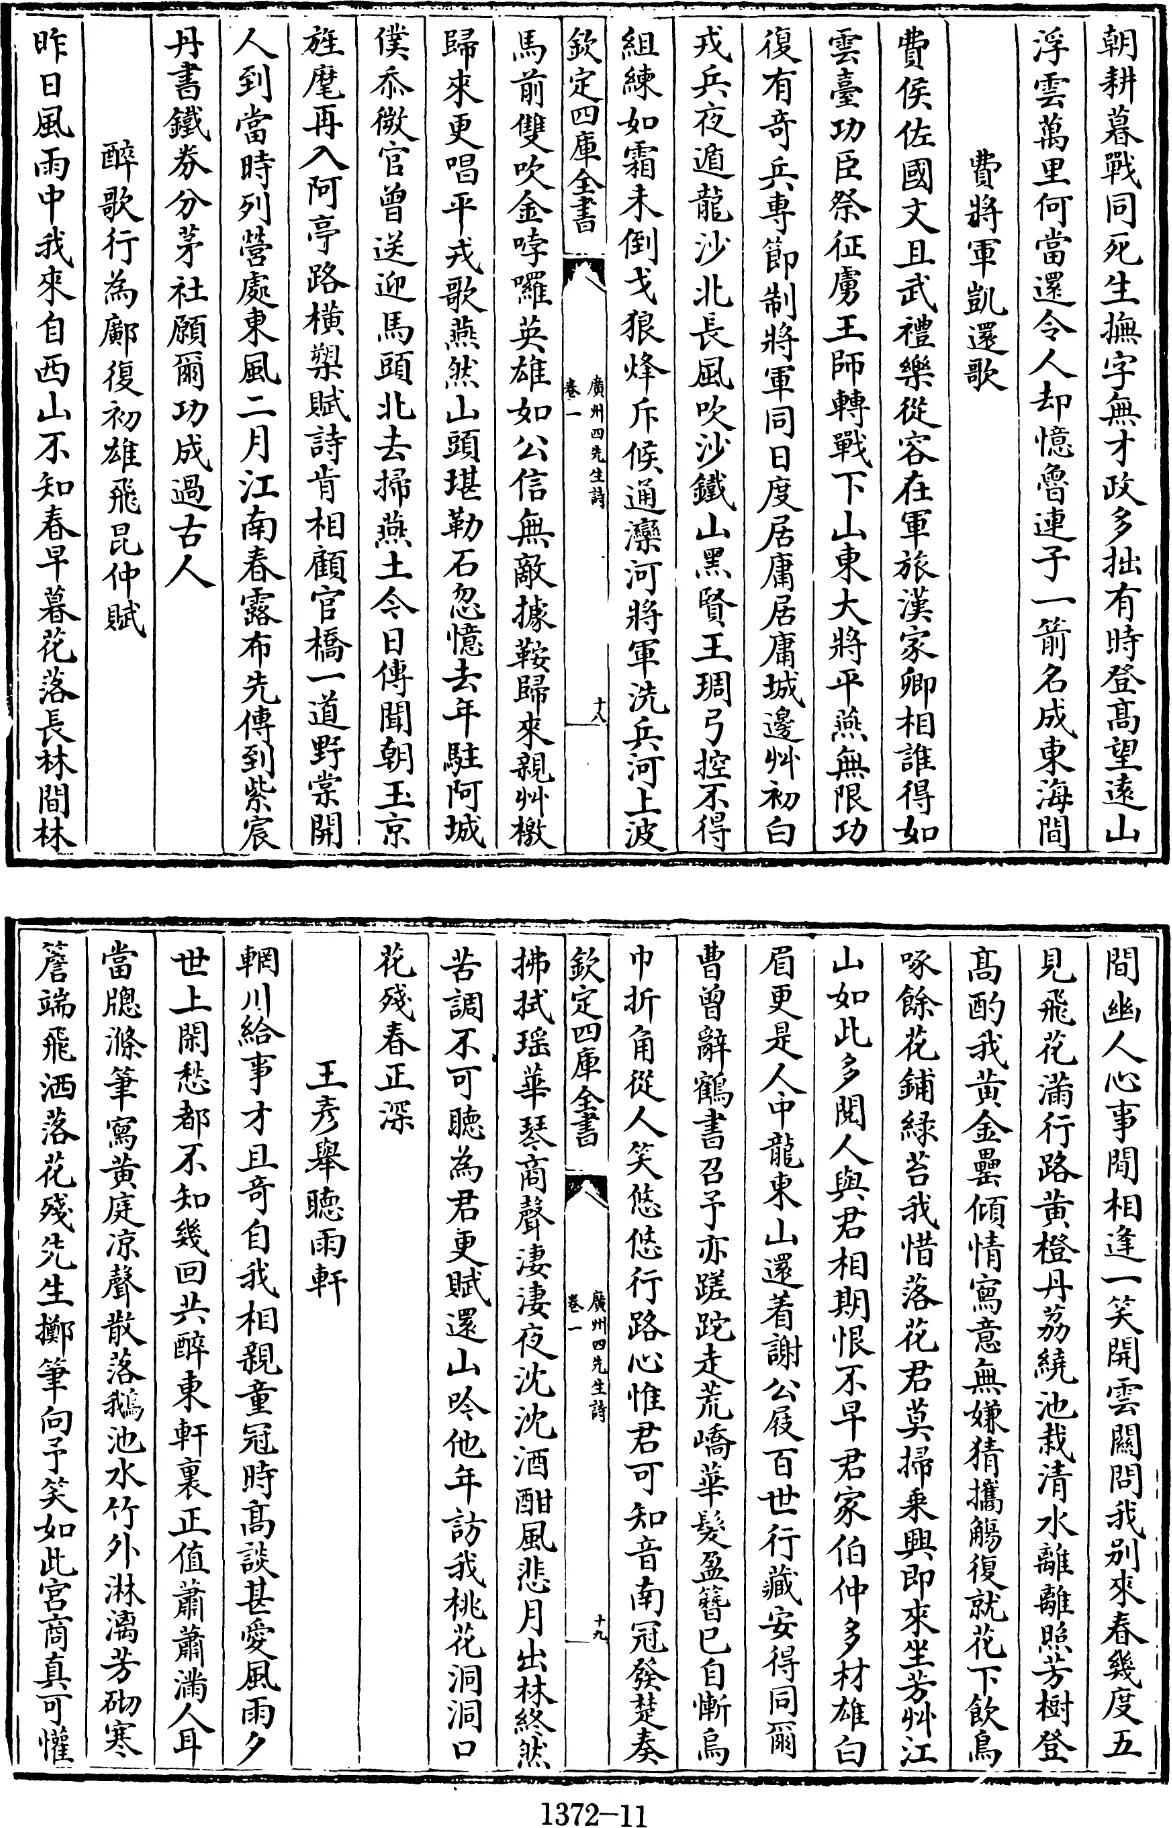 朝耕暮戰同死生撫字無才政多拙有時登髙望逺山
浮雲萬里何當還令人却憶魯連子一箭名成東海間
費將軍凱還歌
費侯佐國文且武禮樂從容在軍旅漢家卿相誰得如
雲臺功臣祭征虜王師轉戰下山東大將平燕無限功
復有竒兵専節制將軍同日度居庸居庸城邊艸初白
戎兵夜遁龍沙北長風吹沙鐵山黑賢王琱弓控不得
組練如霜未倒戈狼烽斥候通灤河將軍洗兵河上波
欽定四庫全書
廣州四先生詩
卷一
十八
馬前雙吹金哱囉英雄如公信無敵據鞍歸來親艸檄
歸來更唱平戎歌燕然山頭堪勒石忽憶去年駐阿城
僕忝微官曾送迎馬頭北去掃燕土今日傳聞朝玉京
旌麾再入阿亭路横槊賦詩肯相顧官橋一道野棠開
人到當時列營處東風二月江南春露布先傳到紫宸
丹書鐵劵分茅社願爾功成過古人
醉歌行為鄺復初雄飛昆仲賦
昨日風雨中我來自西山不知春早暮花落長林間林
間幽人心事閒相逢一笑開雲闗問我别來春幾度五
見飛花滿行路黄橙丹荔繞池栽清水離離照芳樹登
髙酌我黄金罍傾情寫意無嫌猜攜觴復就花下飲鳥
啄餘花鋪緑苔我惜落花君莫掃乘興即來坐芳艸江
山如此多閱人與君相期恨不早君家伯仲多材雄白
眉更是人中龍東山還着謝公屐百世行藏安得同爾
曹曾辭鶴書召予亦蹉跎走荒嶠華髮盈簪已自慚烏
巾折角從人笑悠悠行路心惟君可知音南冠發楚奏
欽定四庫全書
廣州四先生詩
卷一
十九
拂拭瑶華琴商聲淒淒夜沈沈酒酣風悲月出林終然
苦調不可聽為君更賦還山吟他年訪我桃花洞洞口
花殘春正深
王彦舉聽雨軒
輞川給事才且竒自我相親童冠時髙談甚愛風雨夕
世上閑愁都不知幾回共醉東軒裏正值蕭蕭滿人耳
當牕滌筆寫黄庭凉聲散落鵝池水竹外淋漓芳砌寒
簷端飛洒落花殘先生擲筆向予笑如此宫商真可懽
1372-11